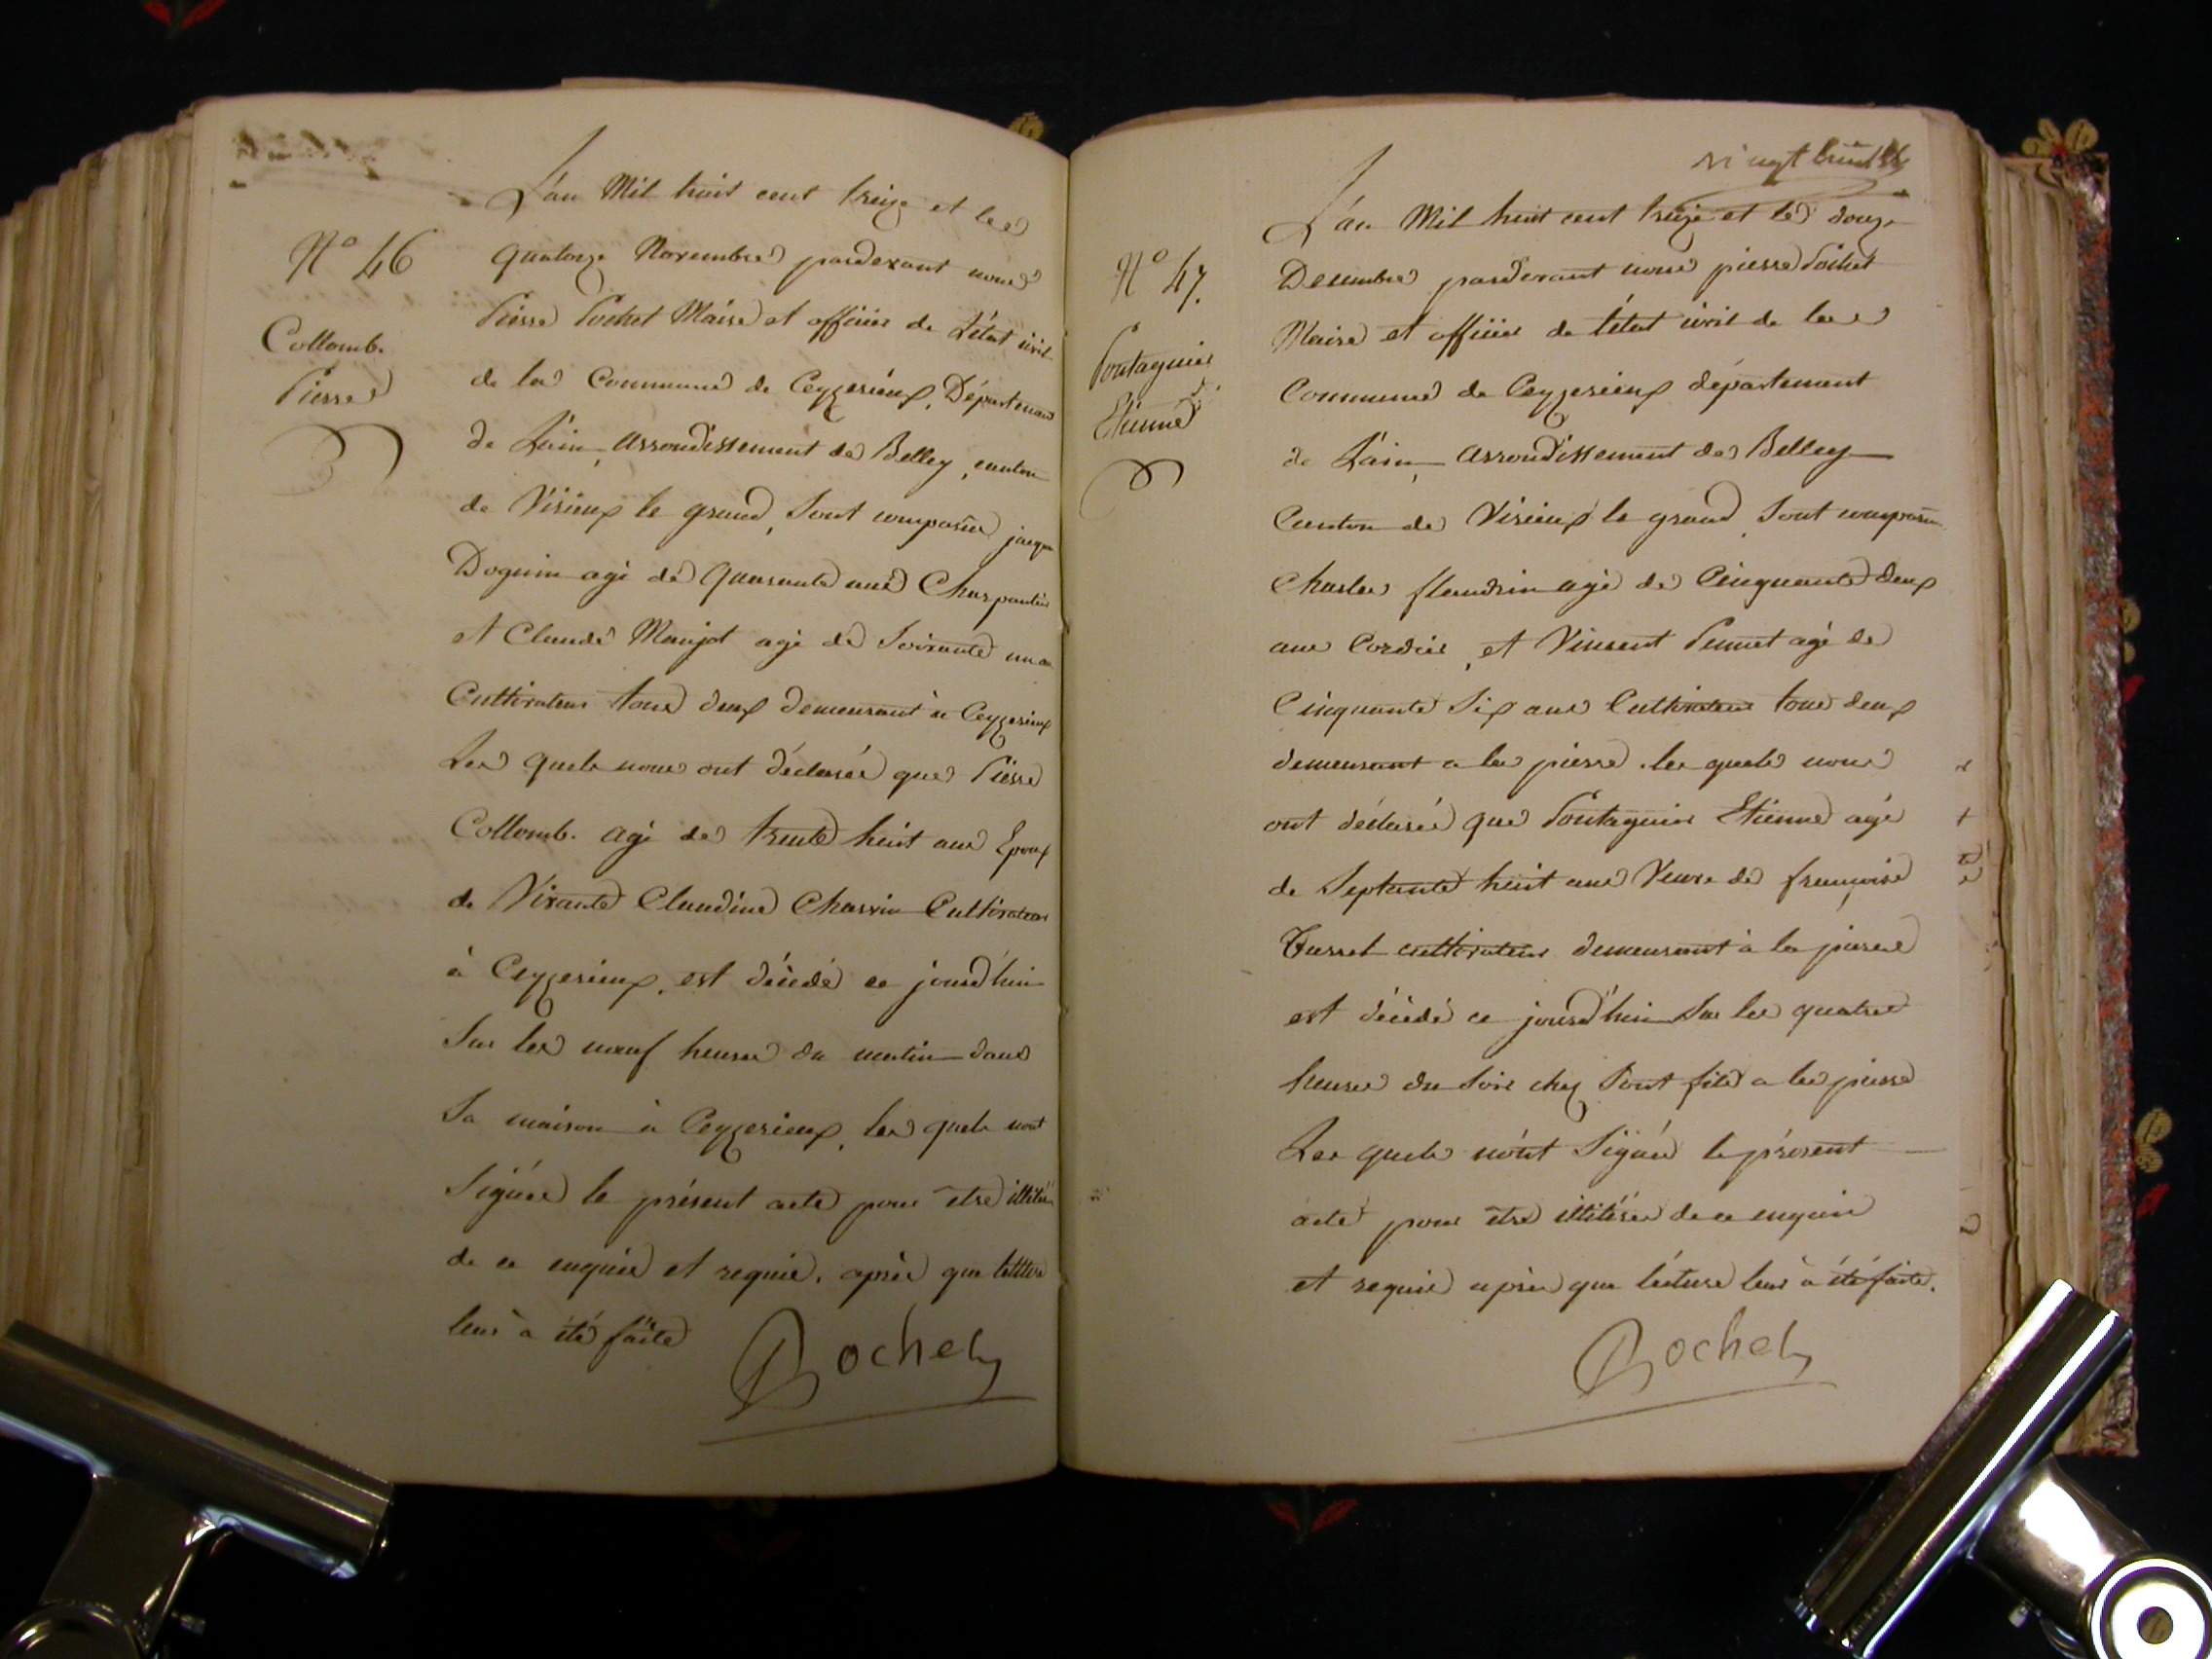 L'an Mil huit cent treize et le
quatorze Novembre pardevant nous
Pierre Pochet Maire et officier de L'état civil
de la Commune de Ceyzerieux, Département
de L'ain, arrondissement de Belley, canton
de Virieux le grand, Sont comparu jacque
Doguin agé de quarante ans Charpantier
et Claude Monjot agé de Soixante un an
Cultivateur tous deux demeurant à Ceyzerieux
Les quels nous ont déclaré que Pierre
Collomb. agé de trente huit ans Epoux
de Vivante Claudine Charvin Cultivateur
à Ceyzerieux, est décédé ce jourd'hui
Sur les neuf heures du matin dans
Sa maison à Ceyzerieux, les quels nont
Signée le présent acte pour être illitérés
de ce enquis et requis. après que lecture
leur à été faite
Rochet
N° 46
Collomb.
Pierre
vingt huit
L'an Mil huit cent treize et le douze
Decembre pardevant nous pierre Pochet
Maire et officier de l'état civil de la
Commune de Ceyzerieux département
de L'ain, arrondissement de Belley
Canton de Virieux le grand, Sont comparu
Charles flandrin agé de Cinquante deux
ans Cordier, et Vincent Pennet agé de
Cinquante Six ans Cultivateur tous deux
demeurant a la pierre. les quels nous
ont déclaré que Pontagnier Etienne agé
de Septante huit ans Veuve de françoise
Tusset cultivateur demeurant à la pierre
est décédé ce jourd'hui Sur les quatre
heures du Soir chez Sont fils a la pierre
Les quels n'ont Signée le présent
acte pour être illitérés de ce enquis
et requis après que lecture leur à été faite.
Rochet
N° 47.
Pontagnier
Etienne